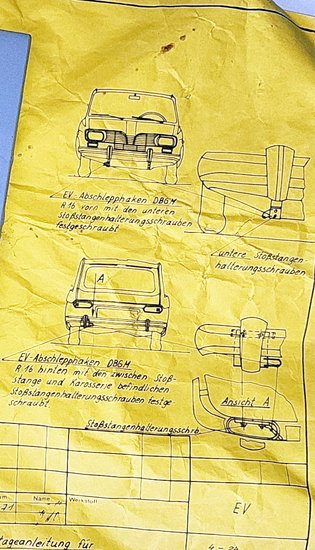 EV-Abschlepphaken DBGM
R 16 vorn mit den unteren
Stoßstangenhalterungsschrauben
festgeschraubt
untere Stoßstangen-
halterungsschrauben
A
EV-Abschlepphaken DBGM
R 16 hinten mit den zwischen Stoß-
stange und Karosserie befindlichen
Stoßstangenhalterungsschrauben festge
schraubt.
Ansicht A
Stoßstangenhalterungsschrb.
Name
Werkstoff
EV
tageanleitung für